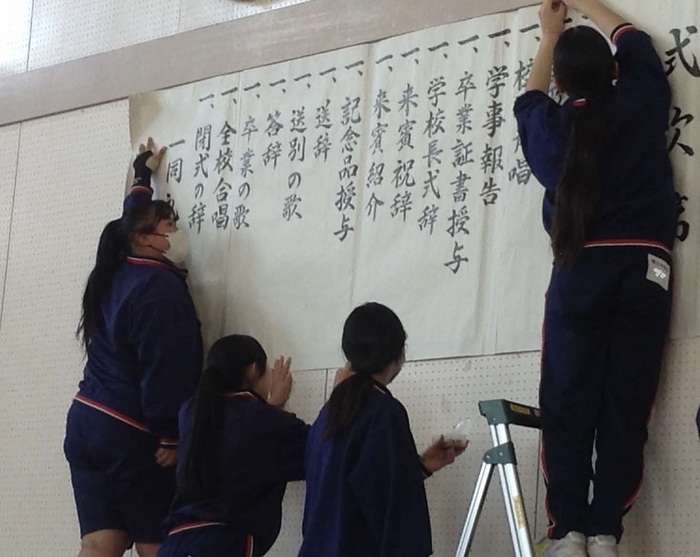 式次第
一、校歌斉唱
一、学事報告
一、卒業証書授与
一、学校長式辞
一、来賓祝辞
一、来賓紹介
一、記念品授与
一、送辞
一、送別の歌
一、答辞
一、卒業の歌
一、全校合唱
一、閉式の辞
一同